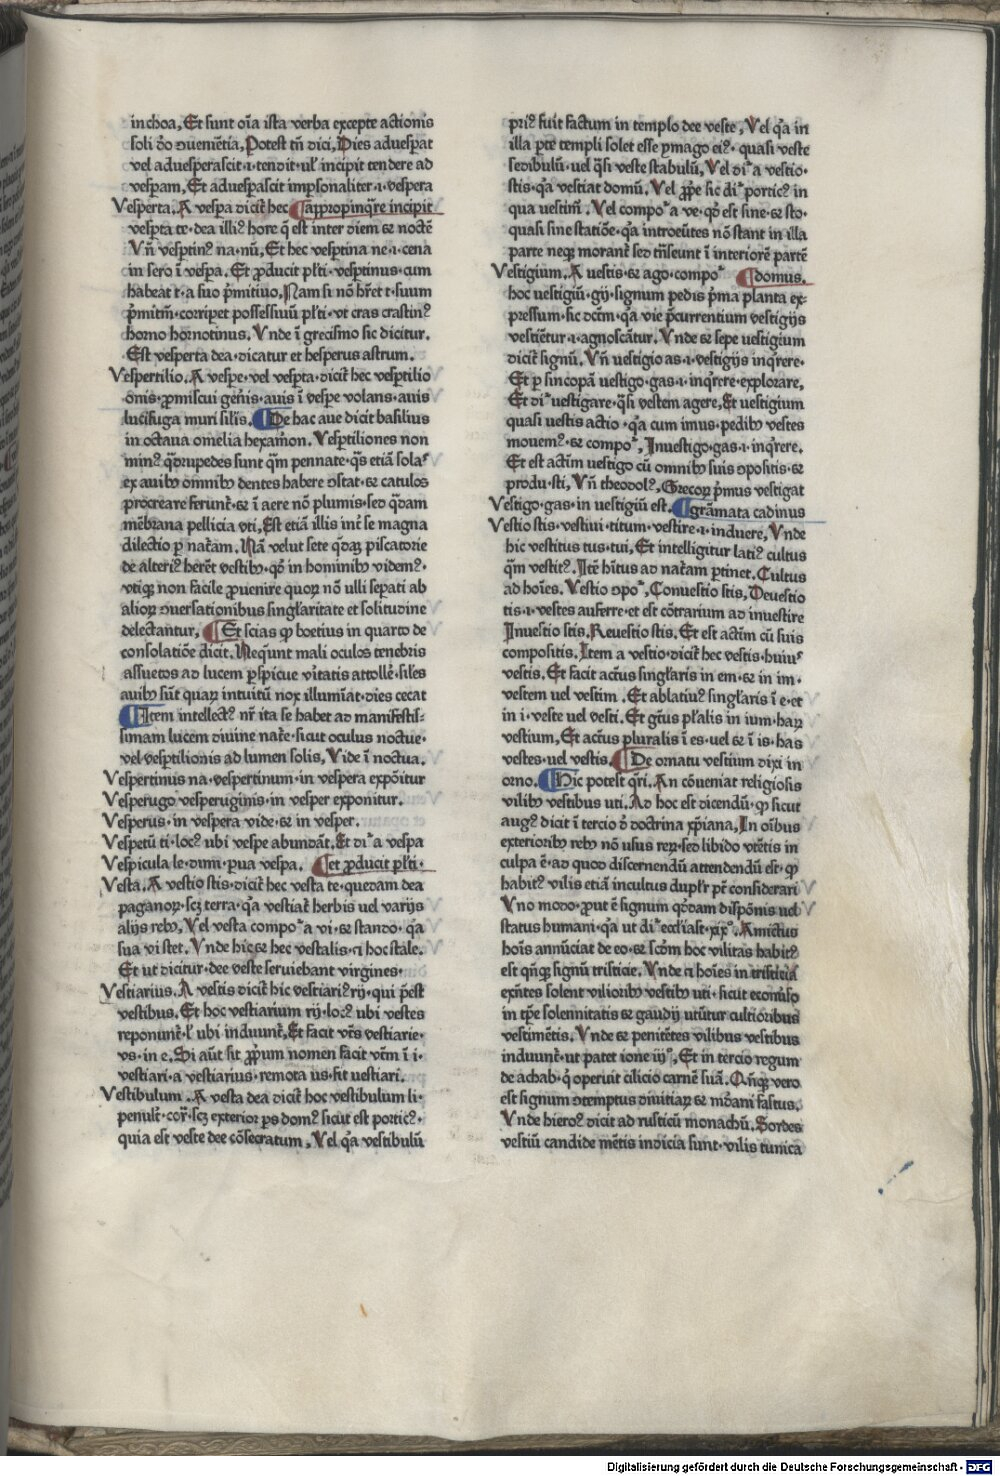 inchoa, Et sunt oīa ista verba excepte actionis
soli ꝺo ꝺueniētia, Potest tn̄ dici, Dies aduesp̄at
vel aduesperascit·i·tendit·ul̕ incipit tendere ad
vesp̄am, Et aduesp̄ascit imp̄sonaliter·i·vespera
Vesperta. A vesp̄a dicit̄ hec ¶app̄ropinq̄re incipit
vesp̄ta te·dea illiꝰ hore q̄ est inter diem ⁊ noctē
Vn̄ vesp̄tinꝰ na·nū, Et hec vesp̄tina ne·i·cena
in sero ī vesp̄a. Et p̄ducit pl̕ti·vesp̄tinus·cum
habeat t·a suo p̄mitiuo, Nam si nō hr̄et t·suum
p̄mitm̄·corripet possessiuū pl̕ti·vt cras crastinꝰ
horno hornotinus. Vnde ī grecismo sic dicitur.
Est vesperta dea·dicatur et hesperus astrum.
Vespertilio. A vespe·vel vesp̄ta·dicit̄ hec vesp̄tilio
onis·p̄miscui gen̄is·auis ī vespe volans·auis
lucifuga muri sil̕is. ¶De hac aue dicit basilius
in octaua omelia hexam̄on. Vesp̄tiliones non
minꝰ q̄drupedes sunt q̄m pennate·q̄s etiā solaꝰ
ex auibꝫ omnibꝫ dentes habere ꝯstat·⁊ catulos
procreare ferunt̄·⁊ ī aere nō plumis·sed q̄dam
mēbrana pellicia vti, Est etiā illis int̄ se magna
dilectio p nat̄am. Nā velut sete q̄dā piscatorie
de alteriꝰ heret̄ vestibꝫ·qꝫ in hominibꝫ videmꝰ·
vtiqꝫ non facile p̄uenire quoꝝ nō ulli sep̄ati ab
alioꝝ ꝯuersationibus singl̕aritate et solitudine
delectantur, ¶Et scias ꝙ boetius in quarto de
consolatiōe dicit. Neq̄unt mali oculos tenebris
assuetos ad lucem p̄spicue v̄itatis attolle̕·sil̕es
auibꝫ sūt quaꝝ intuitū nox illumīat·dies cecat
¶Item intellectꝰ nr̄ ita se habet ad manifestis-
simam lucem diuine nat̄e·sicut oculus noctue·
vel vesp̄tilionis ad lumen solis, Vide ī noctua.
Vespertinus na·vespertinum·in vespera expōitur
Vesperugo vesperuginis·in vesper exponitur.
Vesperus·in vespera vide·⁊ in vesper.
Vespetū ti·locꝰ ubi vespe abundāt. Et di̕ a vespa
Vespicula le·dim̄·p̄ua vespa. ¶et p̄ducit pl̕ti·
Vesta. A vestio stis·dicit̄ hec vesta te·quedam dea
paganoꝝ·scꝫ terra·q̄a vestiat̄ herbis uel varijs
alijs rebꝫ, Vel vesta compo a vi·⁊ stando·q̄a
sua vi stet. Vnde hic·⁊ hec vestalis·⁊ hoc stale.
Et ut dicitur·dee veste seruiebant virgines·
Vestiarius. A vestis dicit̄ hic vestiariꝰ rij·qui p̄est
vestibus. Et hoc vestiarium rij·locꝰ ubi vestes
reponunt̄·l̕ ubi induunt̄, Et facit vt̄s vestiarie·
vs·in e, Si aūt sit pp̄um nomen facit vt̄m ī i·
vestiari·a vestiarius·remota us·fit uestiari.
Vestibulum. A vesta dea dicit̄ hoc vestibulum li·
penult̄·cor̄·scꝫ exterior ps domꝰ sicut est porticꝰ·
quia est veste dee cōsecratum, Vel q̄a vestibulū
priꝰ fuit factum in templo dee veste, Vel q̄a in
illa p̄te templi solet esse ymago eiꝰ·quasi veste
sedibulū·uel q̄si veste stabulū, Vel di̕ a vestio·
stis·q̄a vestiat domū. Vel p̄pe sic di̕ porticꝰ in
qua uestim̄. Vel compo a ve·qꝫ est sine·⁊ sto·
quasi sine statiōe·q̄a introeūtes nō stant in illa
parte neqꝫ morant̄ sed tn̄seunt ī interiorē partē
Vestigium. A uestis·⁊ ago·compo ¶domus.
hoc uestigiū·gij·signum pedis p̄ma planta ex-
pressum·sic dc̄m·q̄a vie p̄currentium vestigijs
vestiētur·i·agnoscātur. Vnde ⁊ sepe uestigium
dicit̄ signū. Vn̄ uestigio as·i·vestigijs inq̄rere·
Et p sincopā uestigo·gas·i·inq̄rere·explorare,
Et di̕ uestigare·q̄si vestem agere, Et uestigium
quasi uestis actio·q̄a cum imus·pedibꝫ vestes
mouemꝰ·⁊ compo, Inuestigo·gas·i·inq̄rere.
Et est actīm uestigo cū omnibꝫ suis ꝯpositis·⁊
produ·sti, Vn̄ theodolꝰ, Grecoꝝ p̄mus vestigat
Vestigo·gas·in uestigiū est. ¶grāmata cadinus
Vestio stis·vestiui·titum·vestire·i·induere, Vnde
hic vestitus tus·tui, Et intelligitur latiꝰ cultus
q̄m vestitꝰ. Itē hītus ad nat̄am p̄tinet. Cultus
ad hoīes. Vestio ꝯpo, Conuestio stis, Deuestio
tis·i·vestes auferre·et est cōtrarium ad inuestire
Inuestio stis. Reuestio stis. Et est actīm cū suis
compositis. Item a vestio·dicit̄ hec vestis·huiuꝰ
vestis. Et facit act̄us singl̕aris in em·⁊ in im·
vestem uel vestim. Et ablatiuꝰ singl̕aris ī e·et
in i·veste uel vesti. Et gn̄us pl̕alis in ium·haꝝ
vestium, Et act̄us pluralis ī es·uel ⁊ ī is·has
vestes·uel vestis. ¶De ornatu vestium dixi in
orno. ¶Hic potest q̄ri. An cōueniat religiosis
vilibꝫ vestibus uti. Ad hoc est dicendū·ꝙ sicut
augꝰ dicit ī tercio ꝺ doctrina xp̄iana, In oībus
exterioribꝫ rebꝫ nō usus reꝝ·sed libido vtētis in
culpa ē·ad quod discernendū attendendū est·ꝙ
habitꝰ vilis etiā incultus dupl̕r pt̄ considerari
Vno modo·p̄ut ē signum q̄ddam disp̄onis uel
status humani·q̄a ut di̕ eccl̕iast·xix. Amictus
hoīs annūciat de eo·⁊ scd̄m hoc vilitas habitꝰ
est qn̄qꝫ signū tristicie. Vnde ⁊ hoīes in tristicia
exn̄tes solent vilioribꝫ vestibꝫ uti·sicut econūso
in tp̄e solemnitatis ⁊ gaudij utūtur cultioribus
vestimētis. Vnde ⁊ penitētes vilibus vestibus
induunt̄·ut patet ione iij, Et in tercio regum
de achab·q̄ operuit cilicio carnē suā. Qn̄qꝫ vero
est signum ꝯtemptus diuitiaꝝ ⁊ mūdani fastus.
Vnde hieroꝰ dicit ad rusticū monachū. Sordes
vestiū candide mētis indicia sunt·vilis tunica
Digitalisierung gefördert durch die Deutsche Forschungsgemeinschaft - DFG